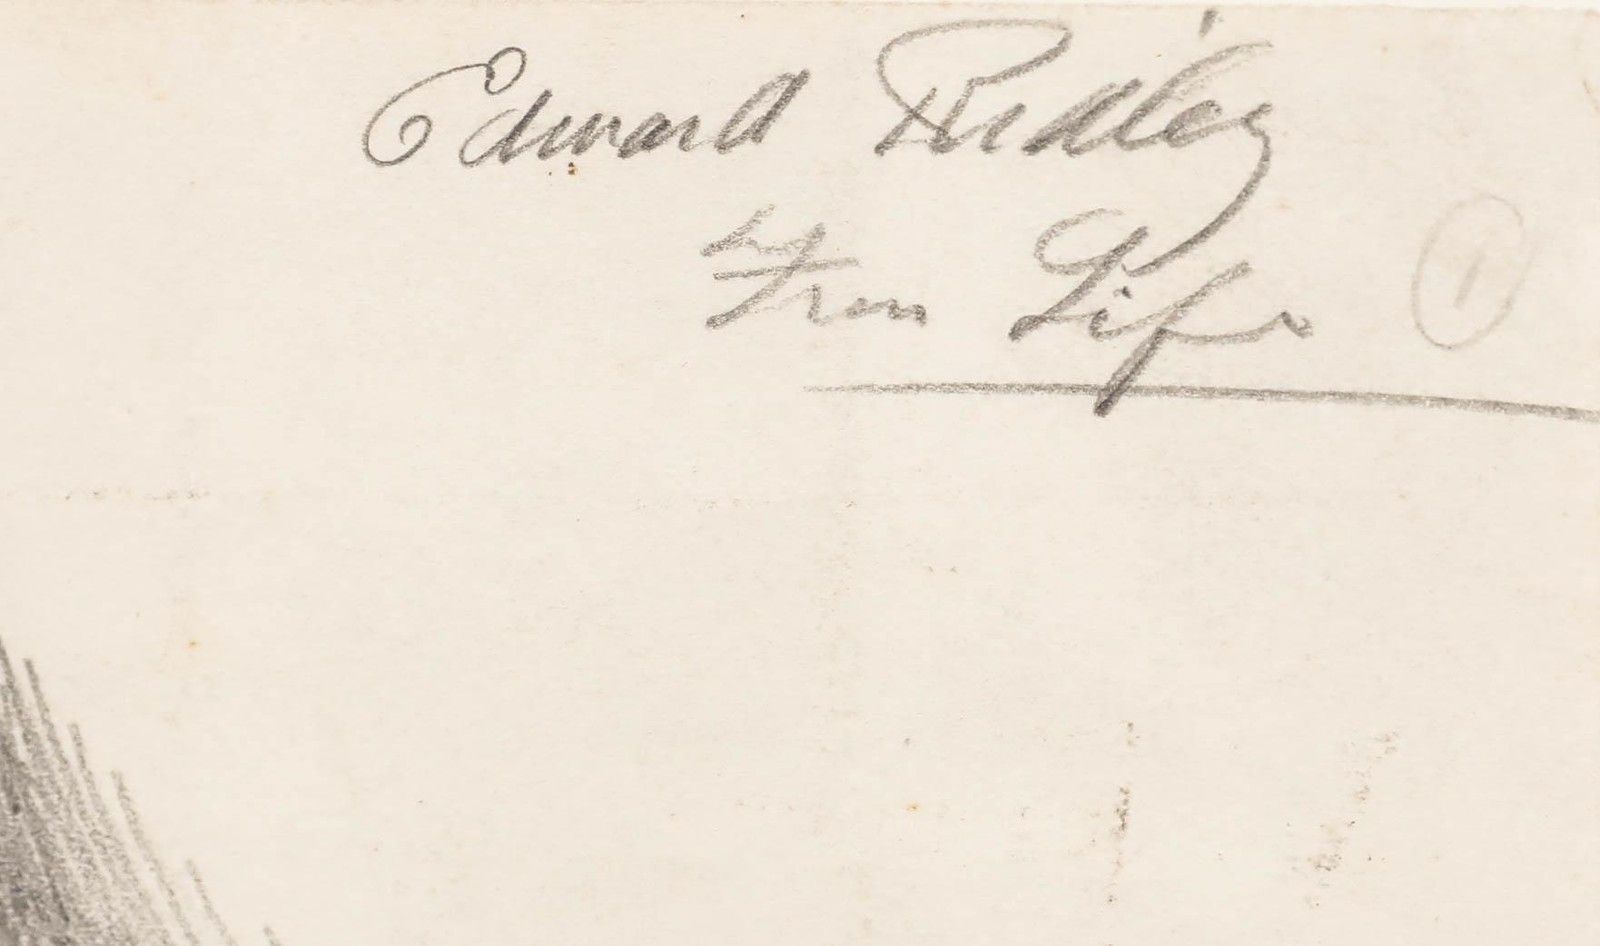 Edward Ridley
From Life
1